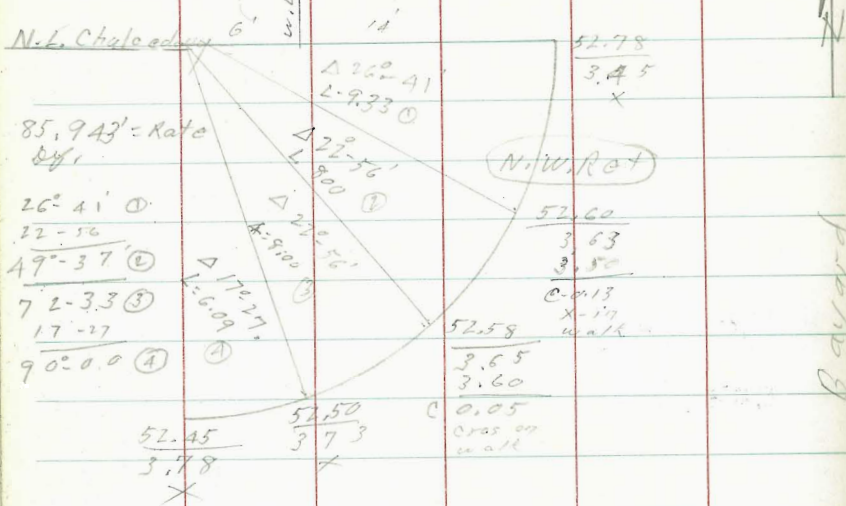 6'
14'
N.L. Chalcedony
52.78
3.45
X
N
Δ 26°-41'
L-9.33 ①
85.943' = Rate
Def.
Δ 22°-56'
L 800 ②
N.W. Ret
26°-41' ①
22-56
49°-37' ②
72-33 ③
17-27
90°-00 ④
Δ 22°-56'
L-8.00 ③
Δ 17°-27'
L-6.09 ④
52.60
3.63
3.50
C-0.13
X-in
walk
52.58
3.65
3.60
C 0.05
cros on
walk
52.50
3 7 3
X
52.45
3.78
X
Bayard